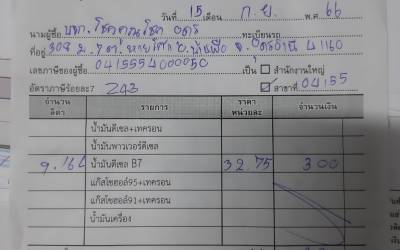 วันที่ 15 เดือน ก.ย. พ.ศ. 66
นามผู้ซื้อ บจก. โชคคูณโชค อุดร ทะเบียนรถ
ที่อยู่ 308 ม.7 ต. อ.บ้านผือ จ.อุดรธานี 41160
เลขภาษีของผู้ซื้อ 0415554000050 เป็น สำนักงานใหญ่
อัตราภาษีร้อยละ7 243 สาขาที่ 04155
จำนวน ลิตร รายการ ราคา หน่วยละ จำนวนเงิน
น้ำมันดีเซล+เทครอน
น้ำมันพาวเวอร์ดีเซล
9.164 น้ำมันดีเซล B7 32.75 300
แก๊สโซฮอล์95+เทครอน
แก๊สโซฮอล์91+เทครอน
น้ำมันเครื่อง